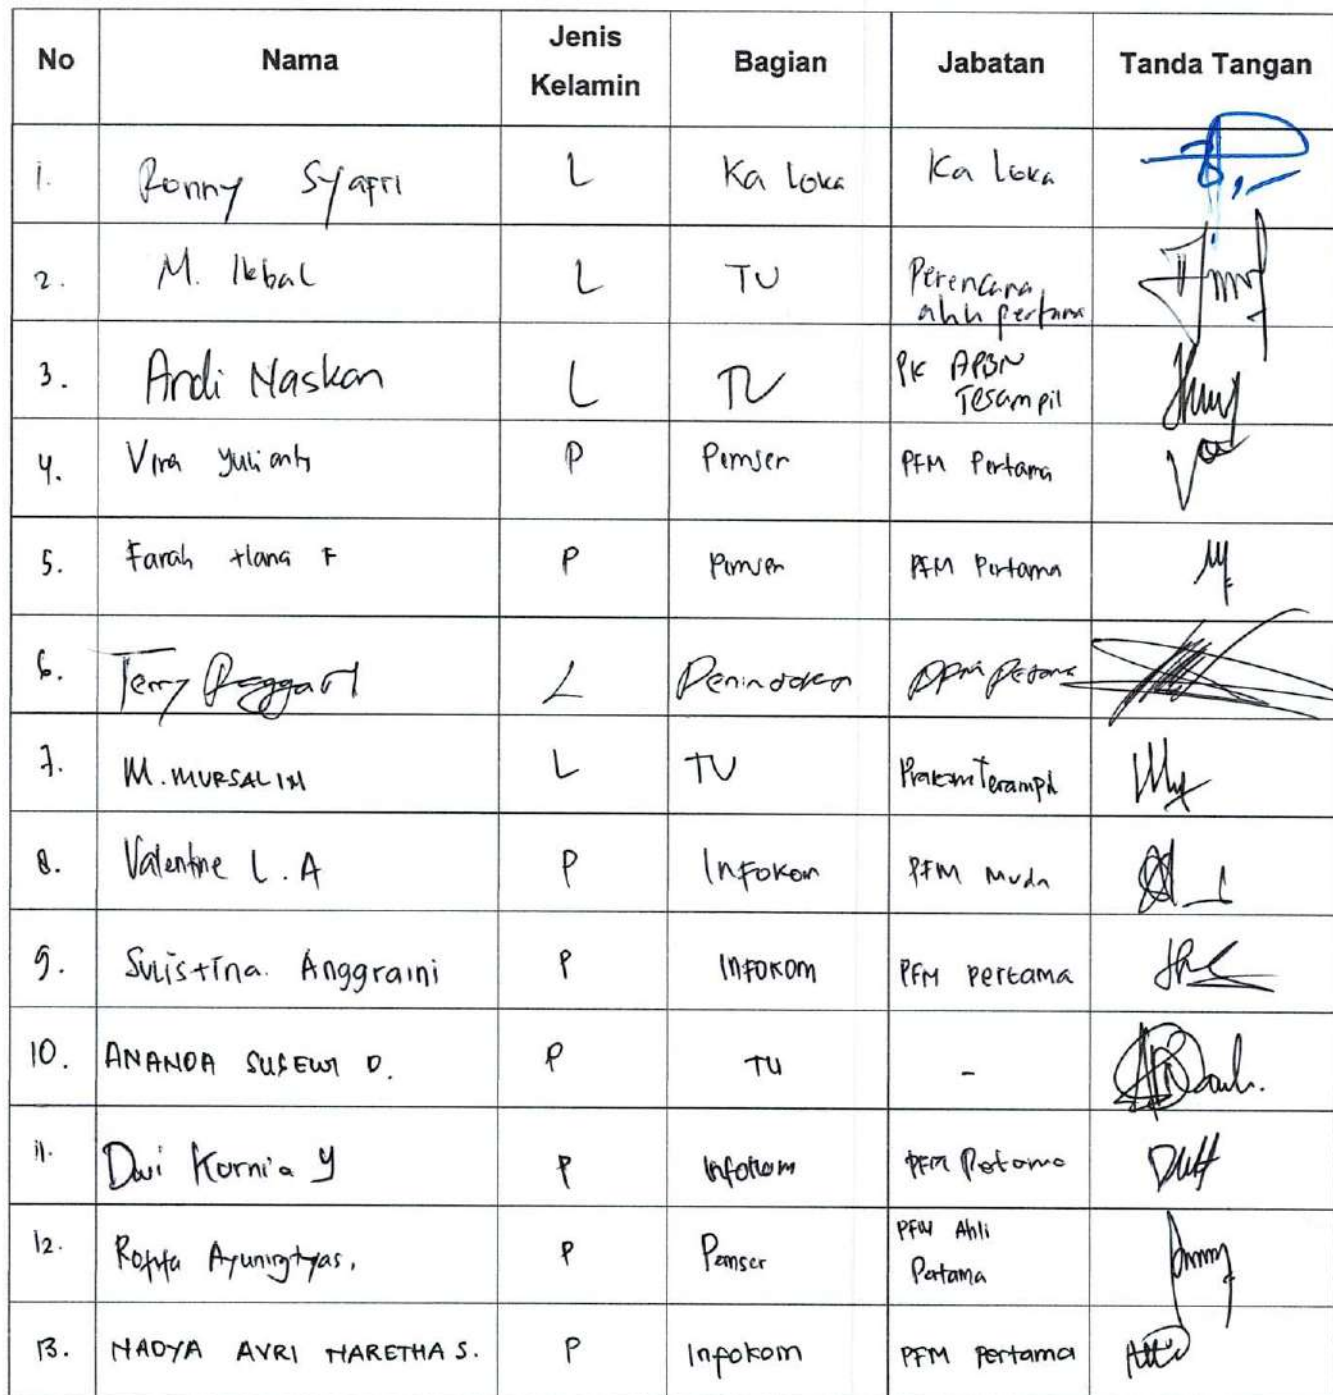 No Nama Jenis Kelamin Bagian Jabatan Tanda Tangan
1. Ronny Syafri L Ka Loka Ka Loka
2. M. Ikbal L TU Perencana ahli pertama
3. Andi Maskan L TU PK APBN Terampil
4. Vira Yulianti P Pemser PFM Pertama
5. Farah Hana F P Pemser PFM Pertama
6. Terry L Penindakan PFM Pertama
7. M. MURSALIM L TU Prakom Terampil
8. Valentine L. A P Infokom PFM Muda
9. Sulistina Anggraini P Infokom PFM Pertama
10. ANANDA D. P TU -
11. Dwi Kurnia Y P Infokom PFM Pertama
12. Ayuningtyas, P Pemser PFM Ahli Pertama
13. NADYA AVRI MARETHA S. P Infokom PFM Pertama